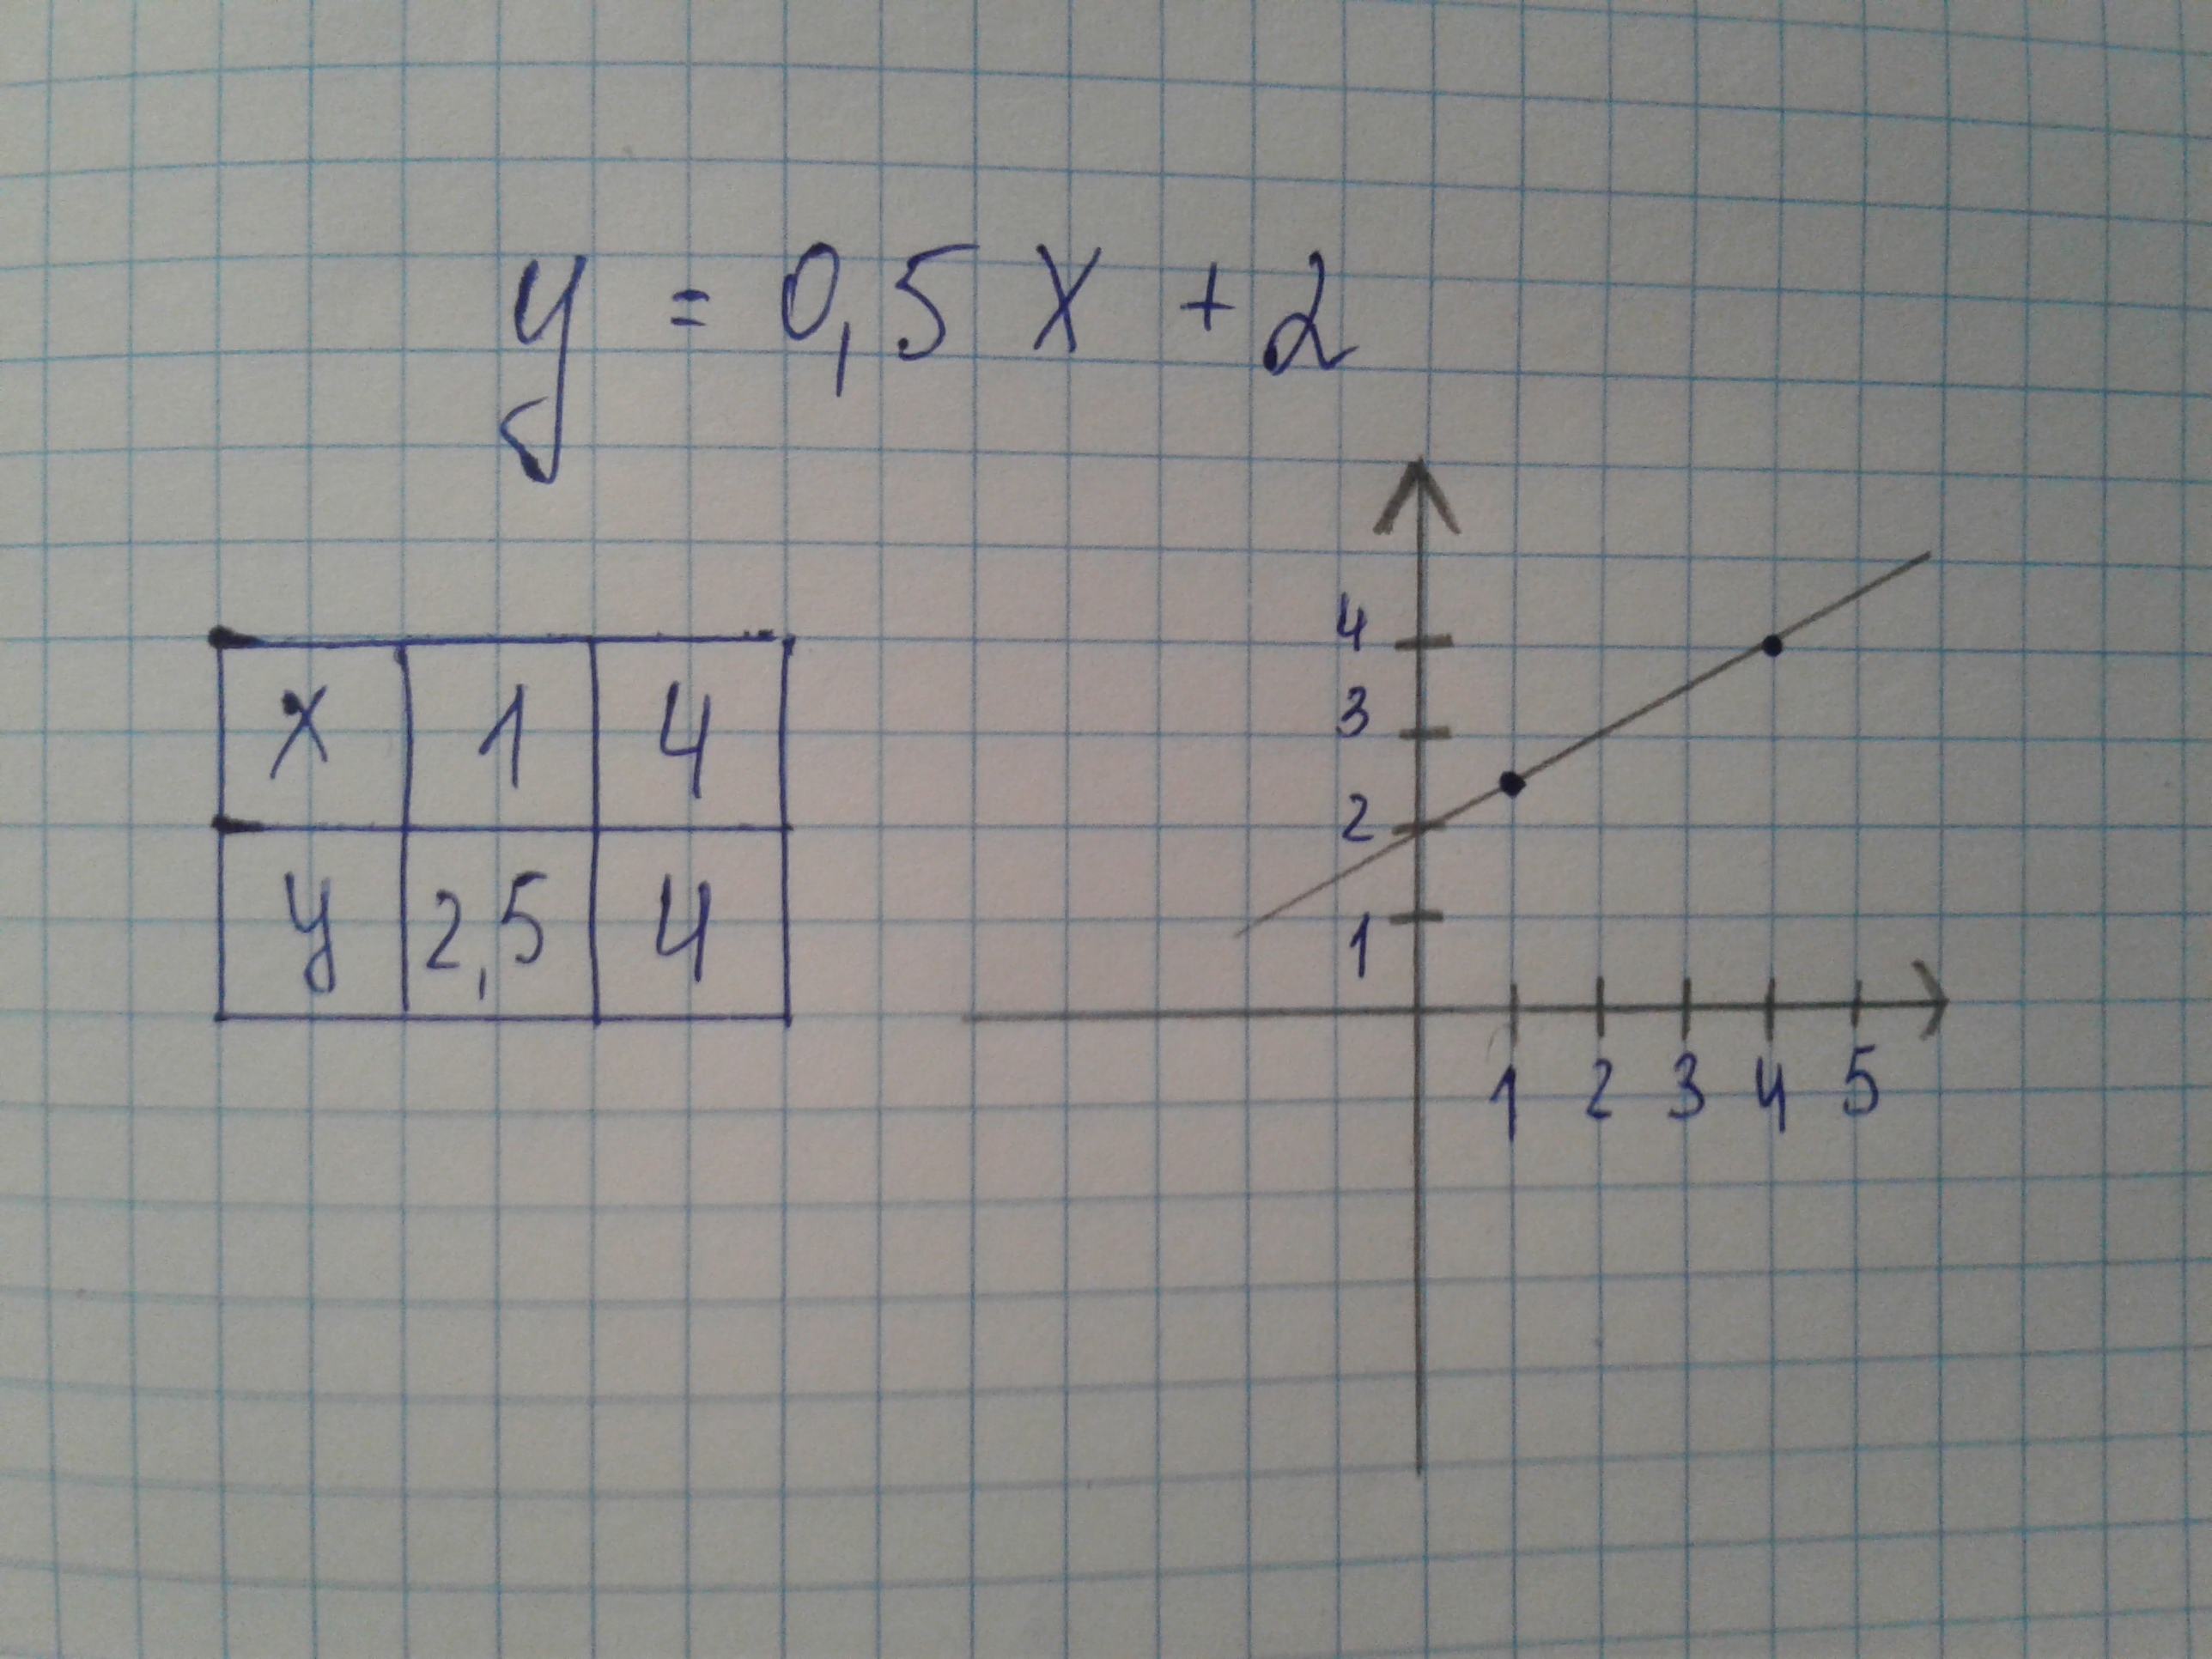 y = 0,5 x + 2
x 1 4
y 2,5 4
4
3
2
1
1 2 3 4 5